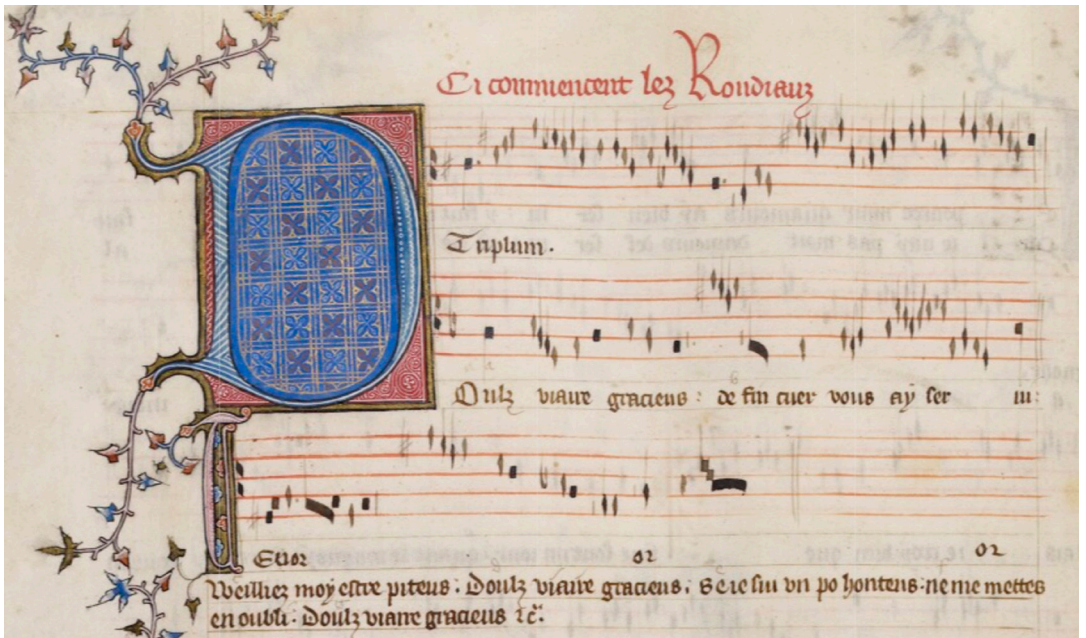 Ci commencent lez Rondiaux
Triplum.
Oulz viaire gracieus : de fin cuer vous ay ser ui:
Enor or or
Veilliez moy estre piteus . Doulz viaire gracieus ; Se ie sui vn po honteus . ne me mettes
en oubli . Doulz viaire gracieus &c.